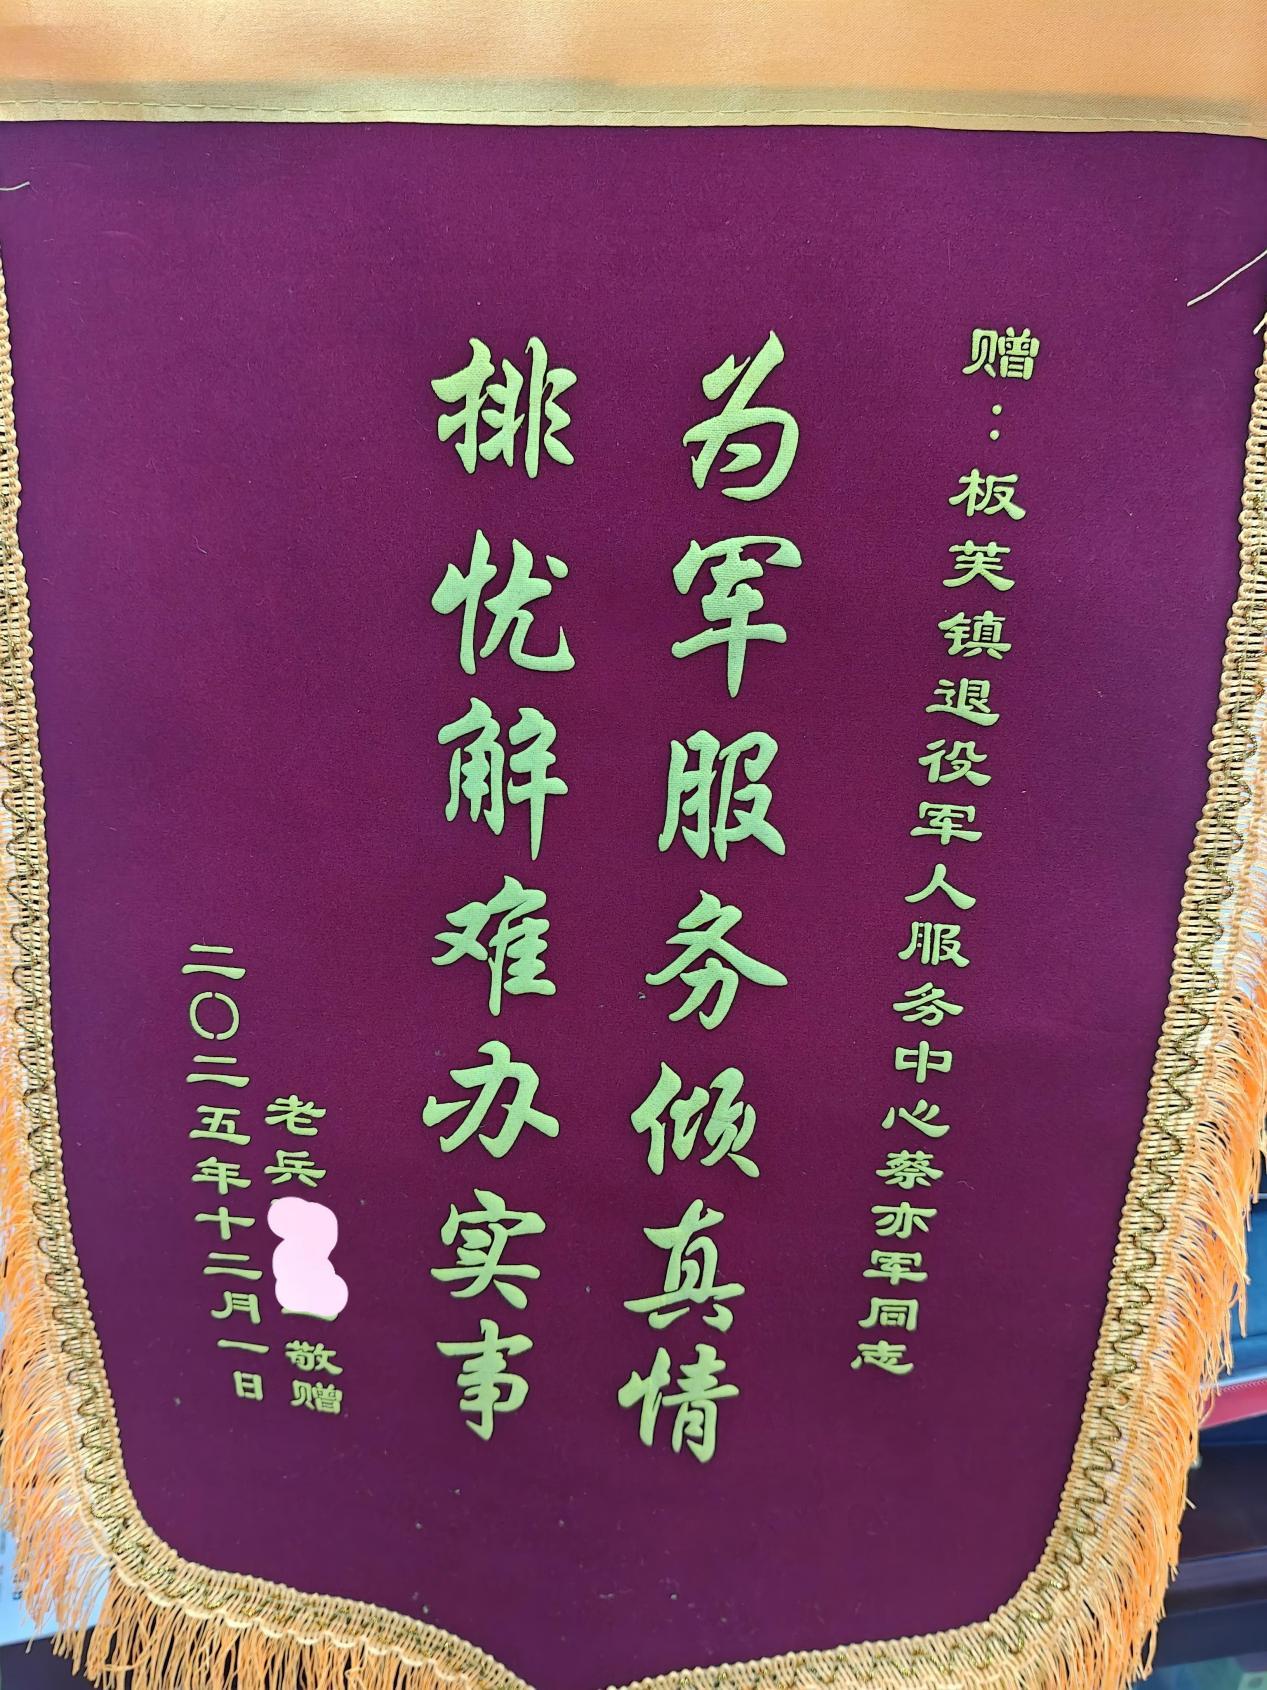 赠：板芙镇退役军人服务中心蔡亦军同志
为军服务倾真情
排忧解难办实事
老兵 敬赠
二〇二五年十二月一日